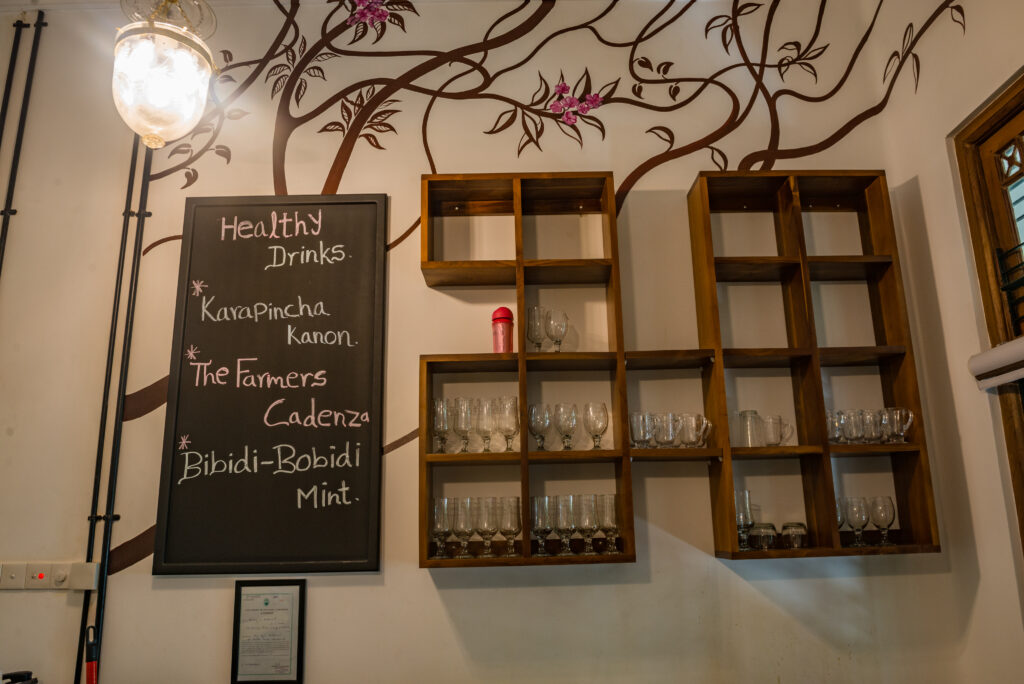 Healthy
Drinks.
* Karapincha
Kanon.
* The Farmers
Cadenza
* Bibidi-Bobidi
Mint.